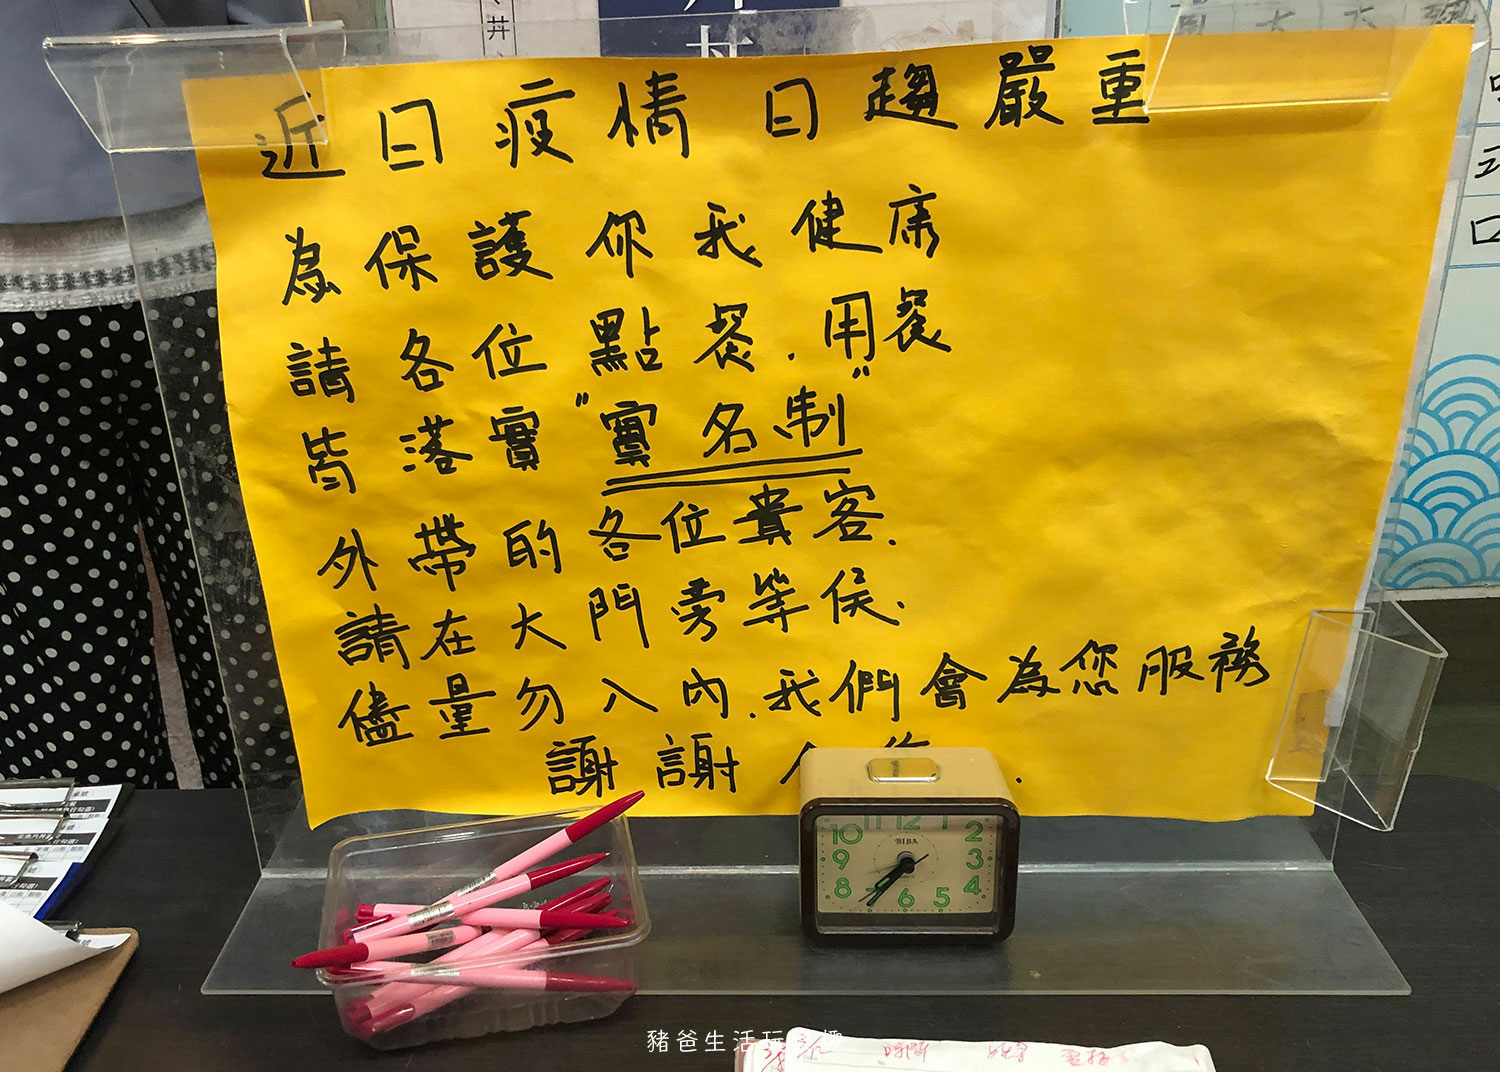 近日疫情日趨嚴重
為保護你我健康
請各位點餐.用餐
皆落實"實名制"
外帶的各位貴客.
請在大門旁等侯.
儘量勿入內.我們會為您服務
謝謝
11 12
10 2
9 3
8 4
7 6 5
BIBA
豬爸生活玩